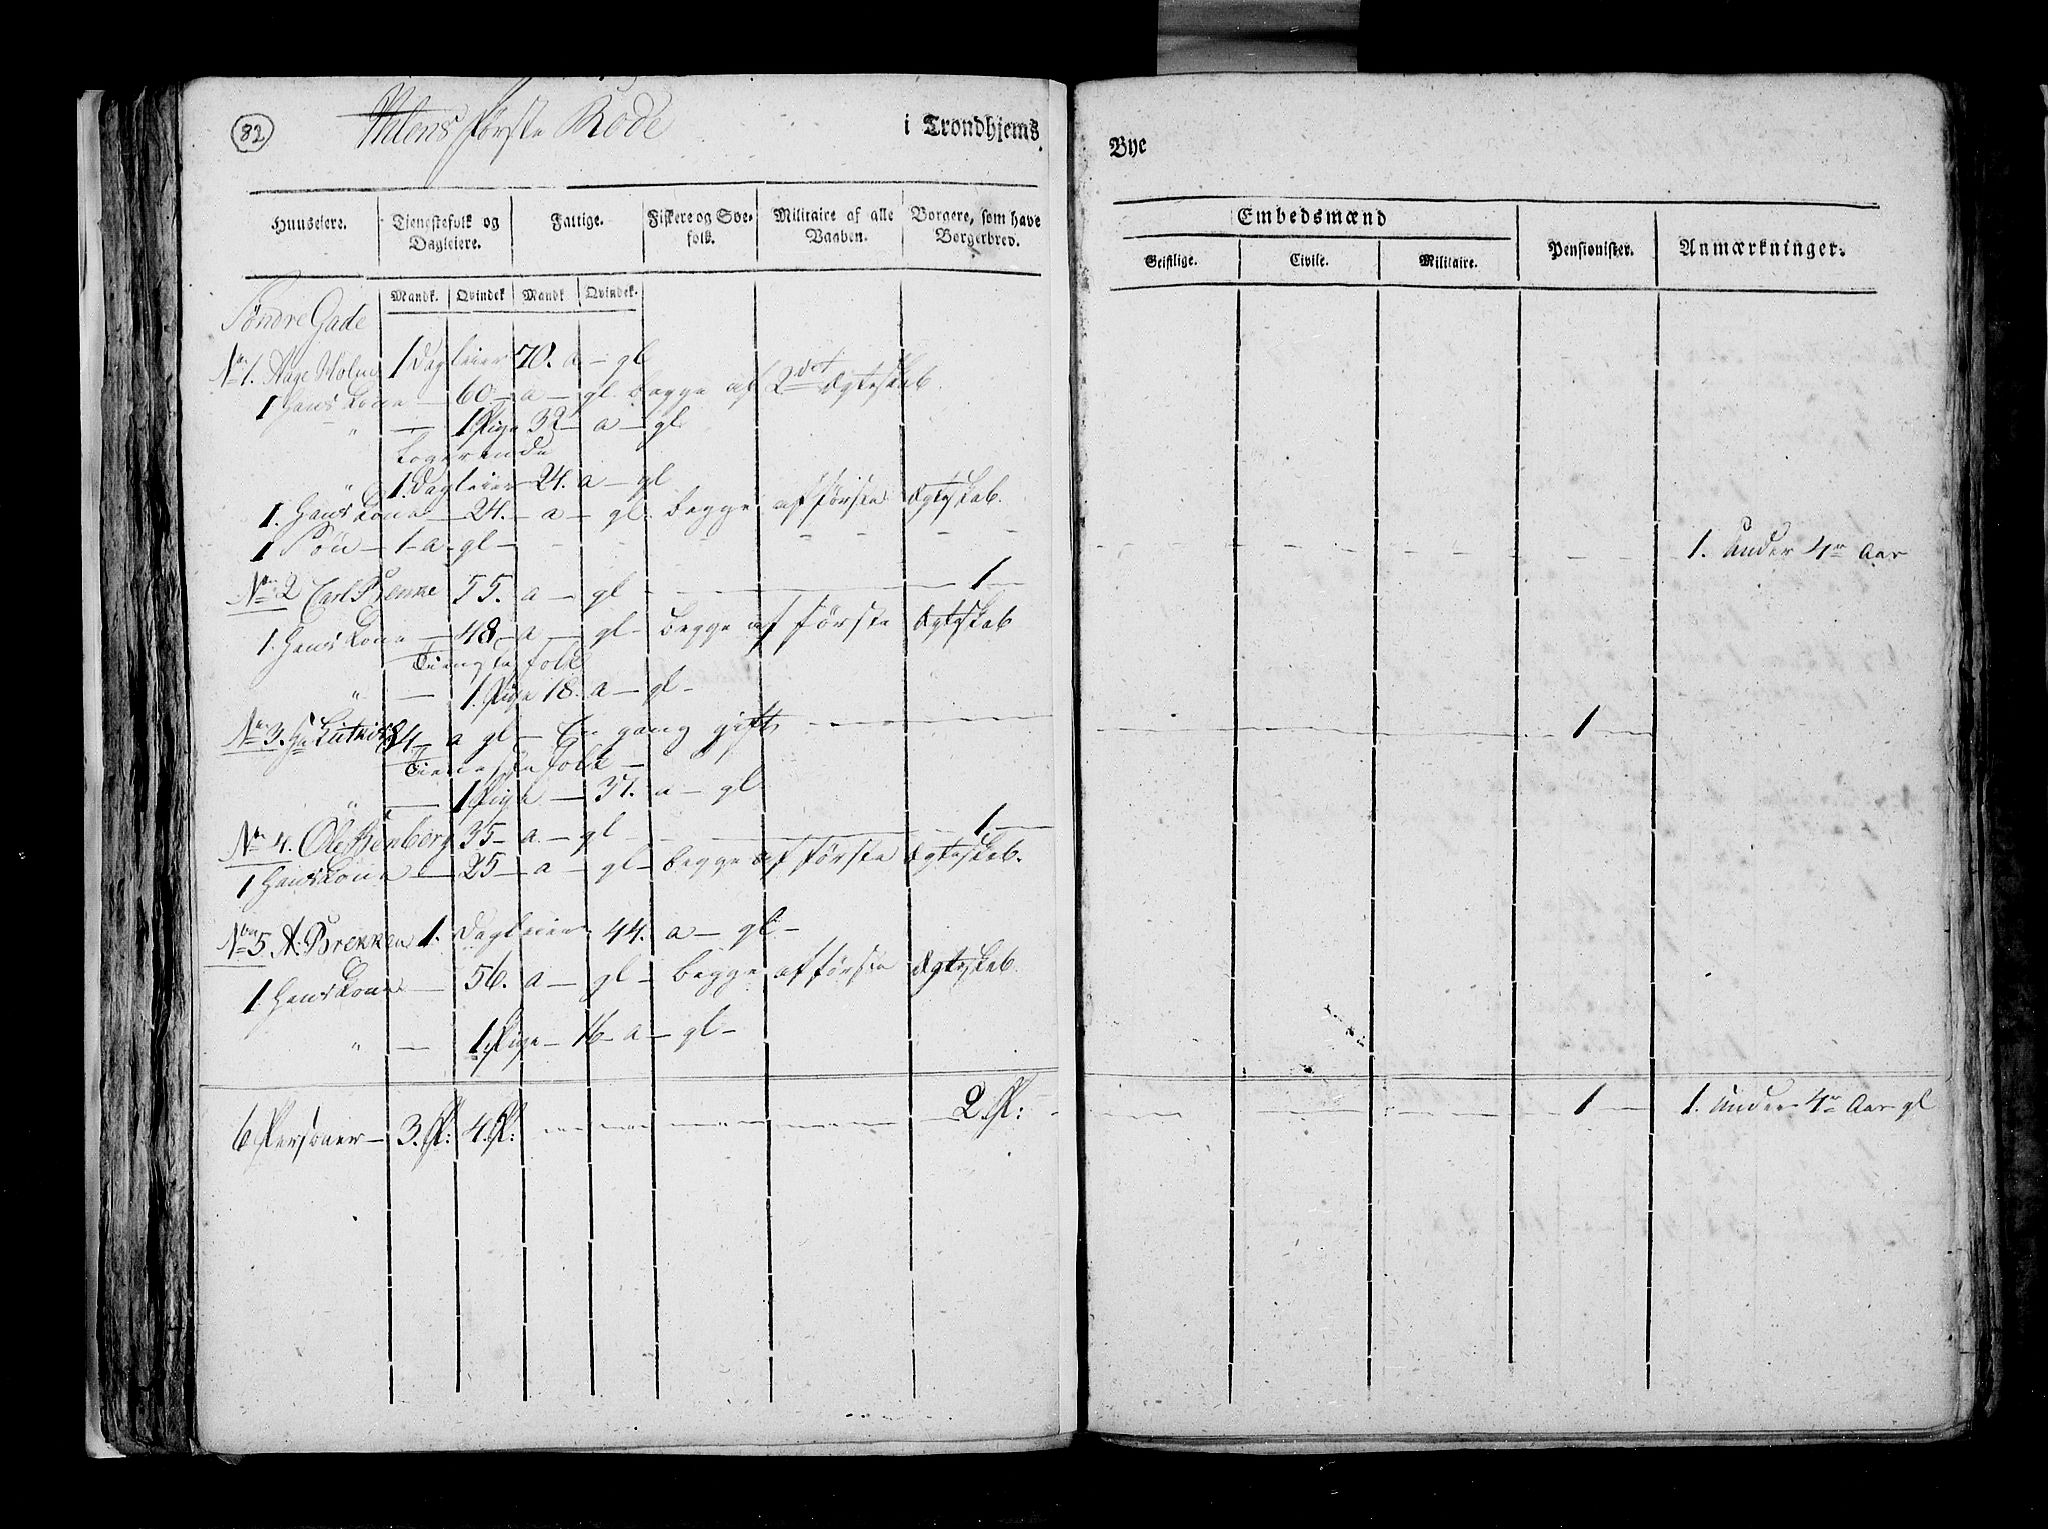 82
Ihlens første Rode
i Trondhjems
Bye
Huuseiere. Tjenestefolk og Dagleiere. Fattige. Fiskere og Søefolk. Militaire af alle Vaaben. Borgere, som have Borgerbrev.
Embedsmænd Pensionister. Anmærkninger.
Geistlige. Civile. Militaire.
Mandk. Qvindek Mandk Qvindek.
Søndre Gade
No 1. Aage Holm 1 Dagleier 70. a – gl
1 Hans Kone – 60 – a – gl. begge af 2det Ægteskab.
" — 1 Pige 32 – a – gl
Logerende
" 1. Dagleier 24. a – gl
1. Hans Kone – 24. – a – gl. begge af første Ægteskab.
1 Søn – 1 – a – gl – – – – – – – – – 1. under 4re Aar
No 2 Carl 55. a – gl – – – – 1 –
1. Hans Kone – 48 – a – gl – begge af første Ægteskab
Tienstefolk
" — 1. Pige 18. a – gl –
No 3. 84 – a gl – En gang gift – – – – – – 1 –
Tienestefolk –
" — 1 Pige – 37. a – gl
No 4. Ole Stenberg 35 – a – gl – – – – 1 –
1 Hans Kone – 25 – a – gl – begge af første Ægteskab.
No 5 A. Brekken 1. Dagleier 44. a – gl –
1. Hans Kone – 56. a – gl – begge af første Ægteskab.
" — 1 Pige – 16 – a – gl –
6 Personer – 3. P: 4. P: – – – – – 2 P: – – – – 1 – 1. under 4re Aar gl